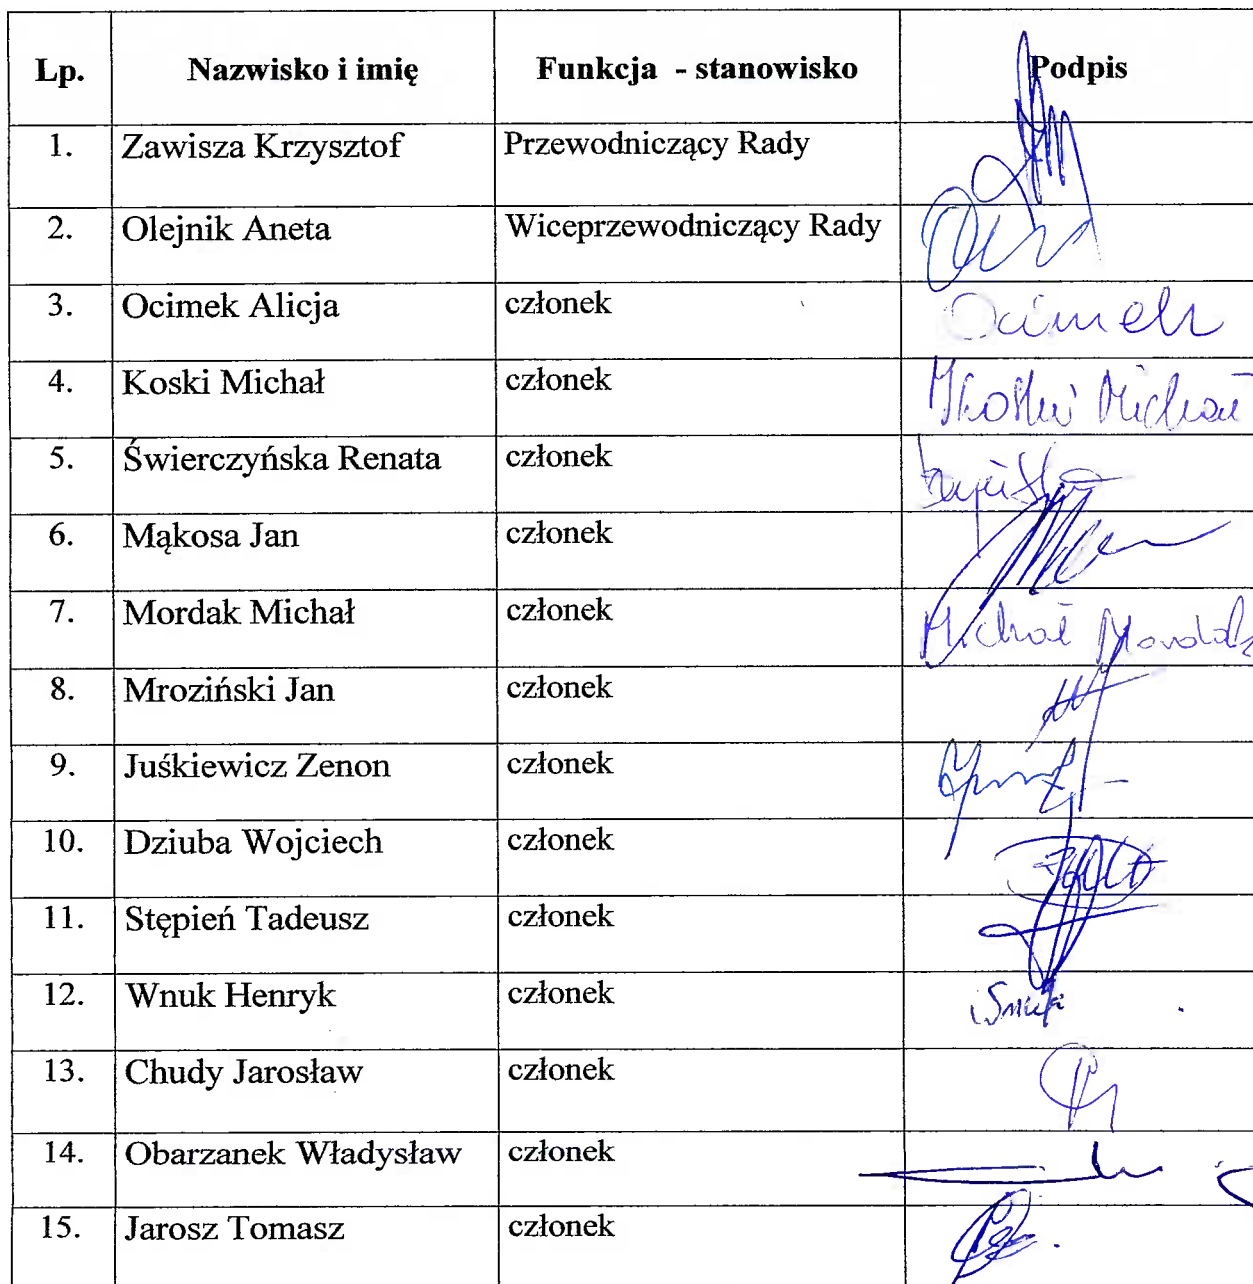 Lp. Nazwisko i imię Funkcja - stanowisko Podpis
1. Zawisza Krzysztof Przewodniczący Rady
2. Olejnik Aneta Wiceprzewodniczący Rady
3. Ocimek Alicja członek Ocimek
4. Koski Michał członek Michał
5. Świerczyńska Renata członek
6. Mąkosa Jan członek
7. Mordak Michał członek Michał Mordak
8. Mroziński Jan członek
9. Juśkiewicz Zenon członek
10. Dziuba Wojciech członek
11. Stępień Tadeusz członek
12. Wnuk Henryk członek
13. Chudy Jarosław członek
14. Obarzanek Władysław członek
15. Jarosz Tomasz członek